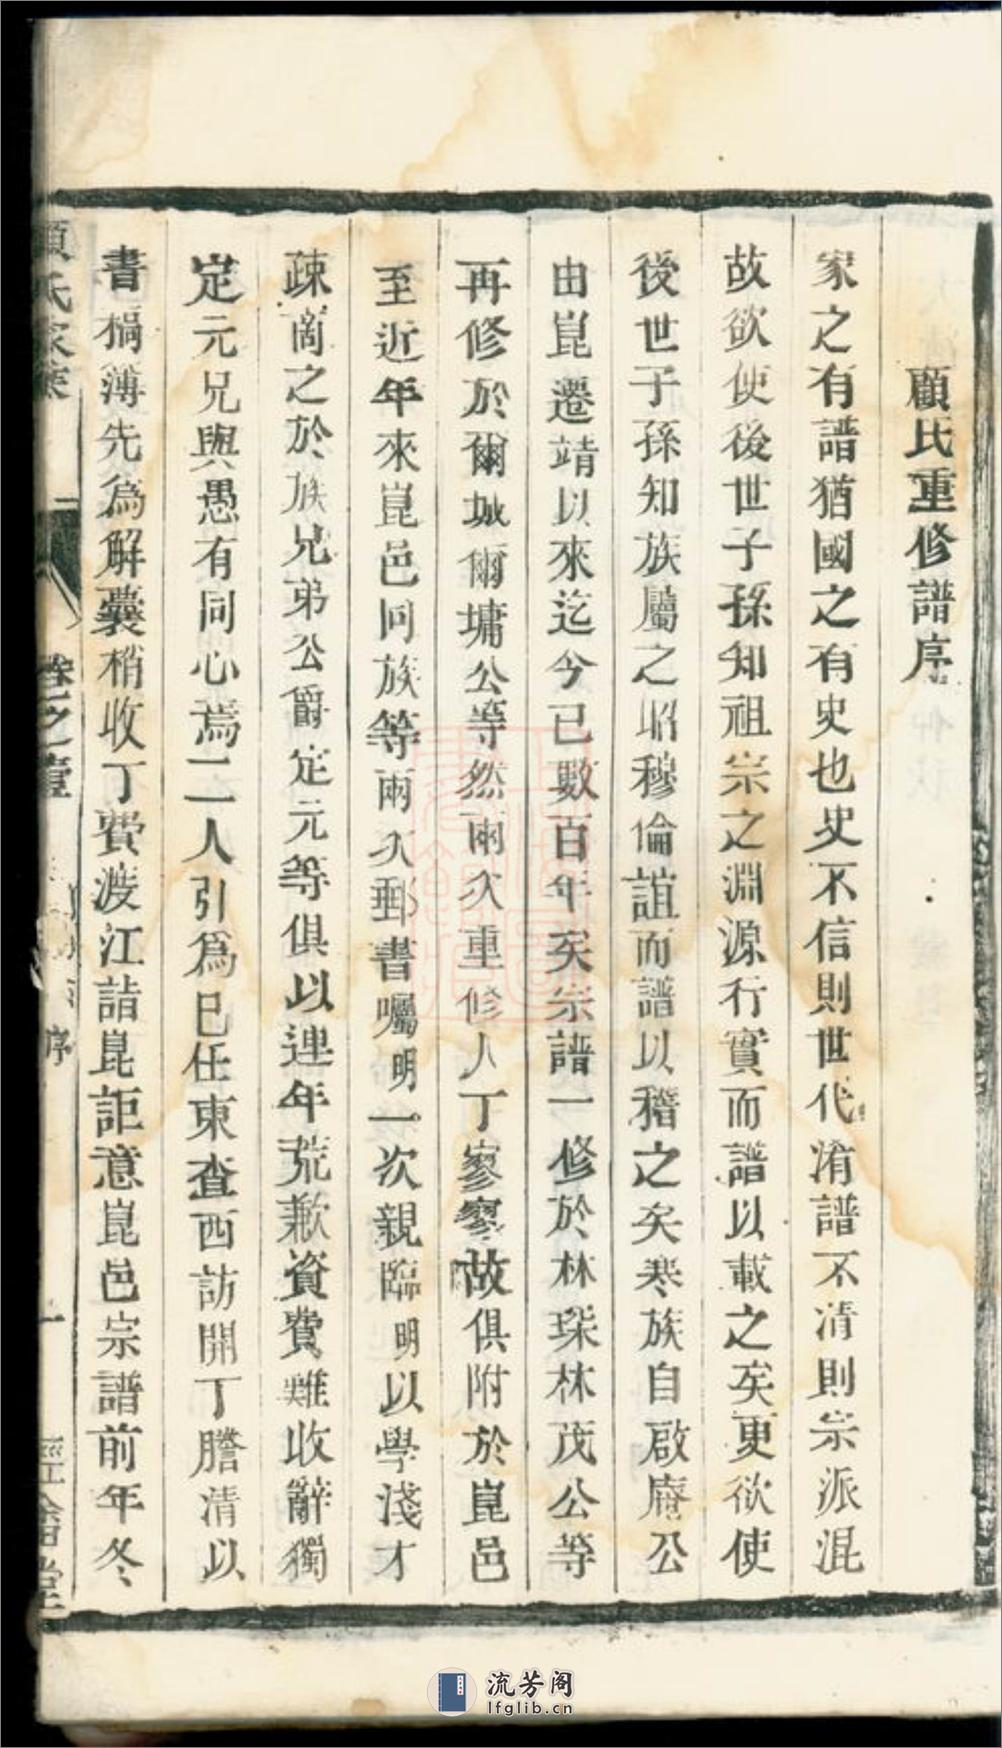 顧氏重修譜序
家之有譜猶國之有史也史不信則世代淆譜不清則宗派混
故欲使後世子孫知祖宗之淵源行實而譜以載之矣更欲使
後世子孫知族屬之昭穆倫誼而譜以稽之矣寒族自啟庵公
由崑遷靖以來迄今已數百年矣宗譜一修於林琛林茂公等
再修於爾城爾墉公等然兩次重修人丁寥寥故俱附於崑邑
至近年來崑邑同族等兩次郵書囑明一次親臨明以學淺才
疎商之於族兄弟公爵定元等俱以連年荒歉資費難收辭獨
定元兄與愚有同心焉二人引爲己任東查西訪開丁謄清以
書槁薄先爲解囊稍收丁費渡江詣崑詎意崑邑宗譜前年冬
顧氏家乘
卷之壹
序
一
經畬堂
流芳阁
lfglib.cn